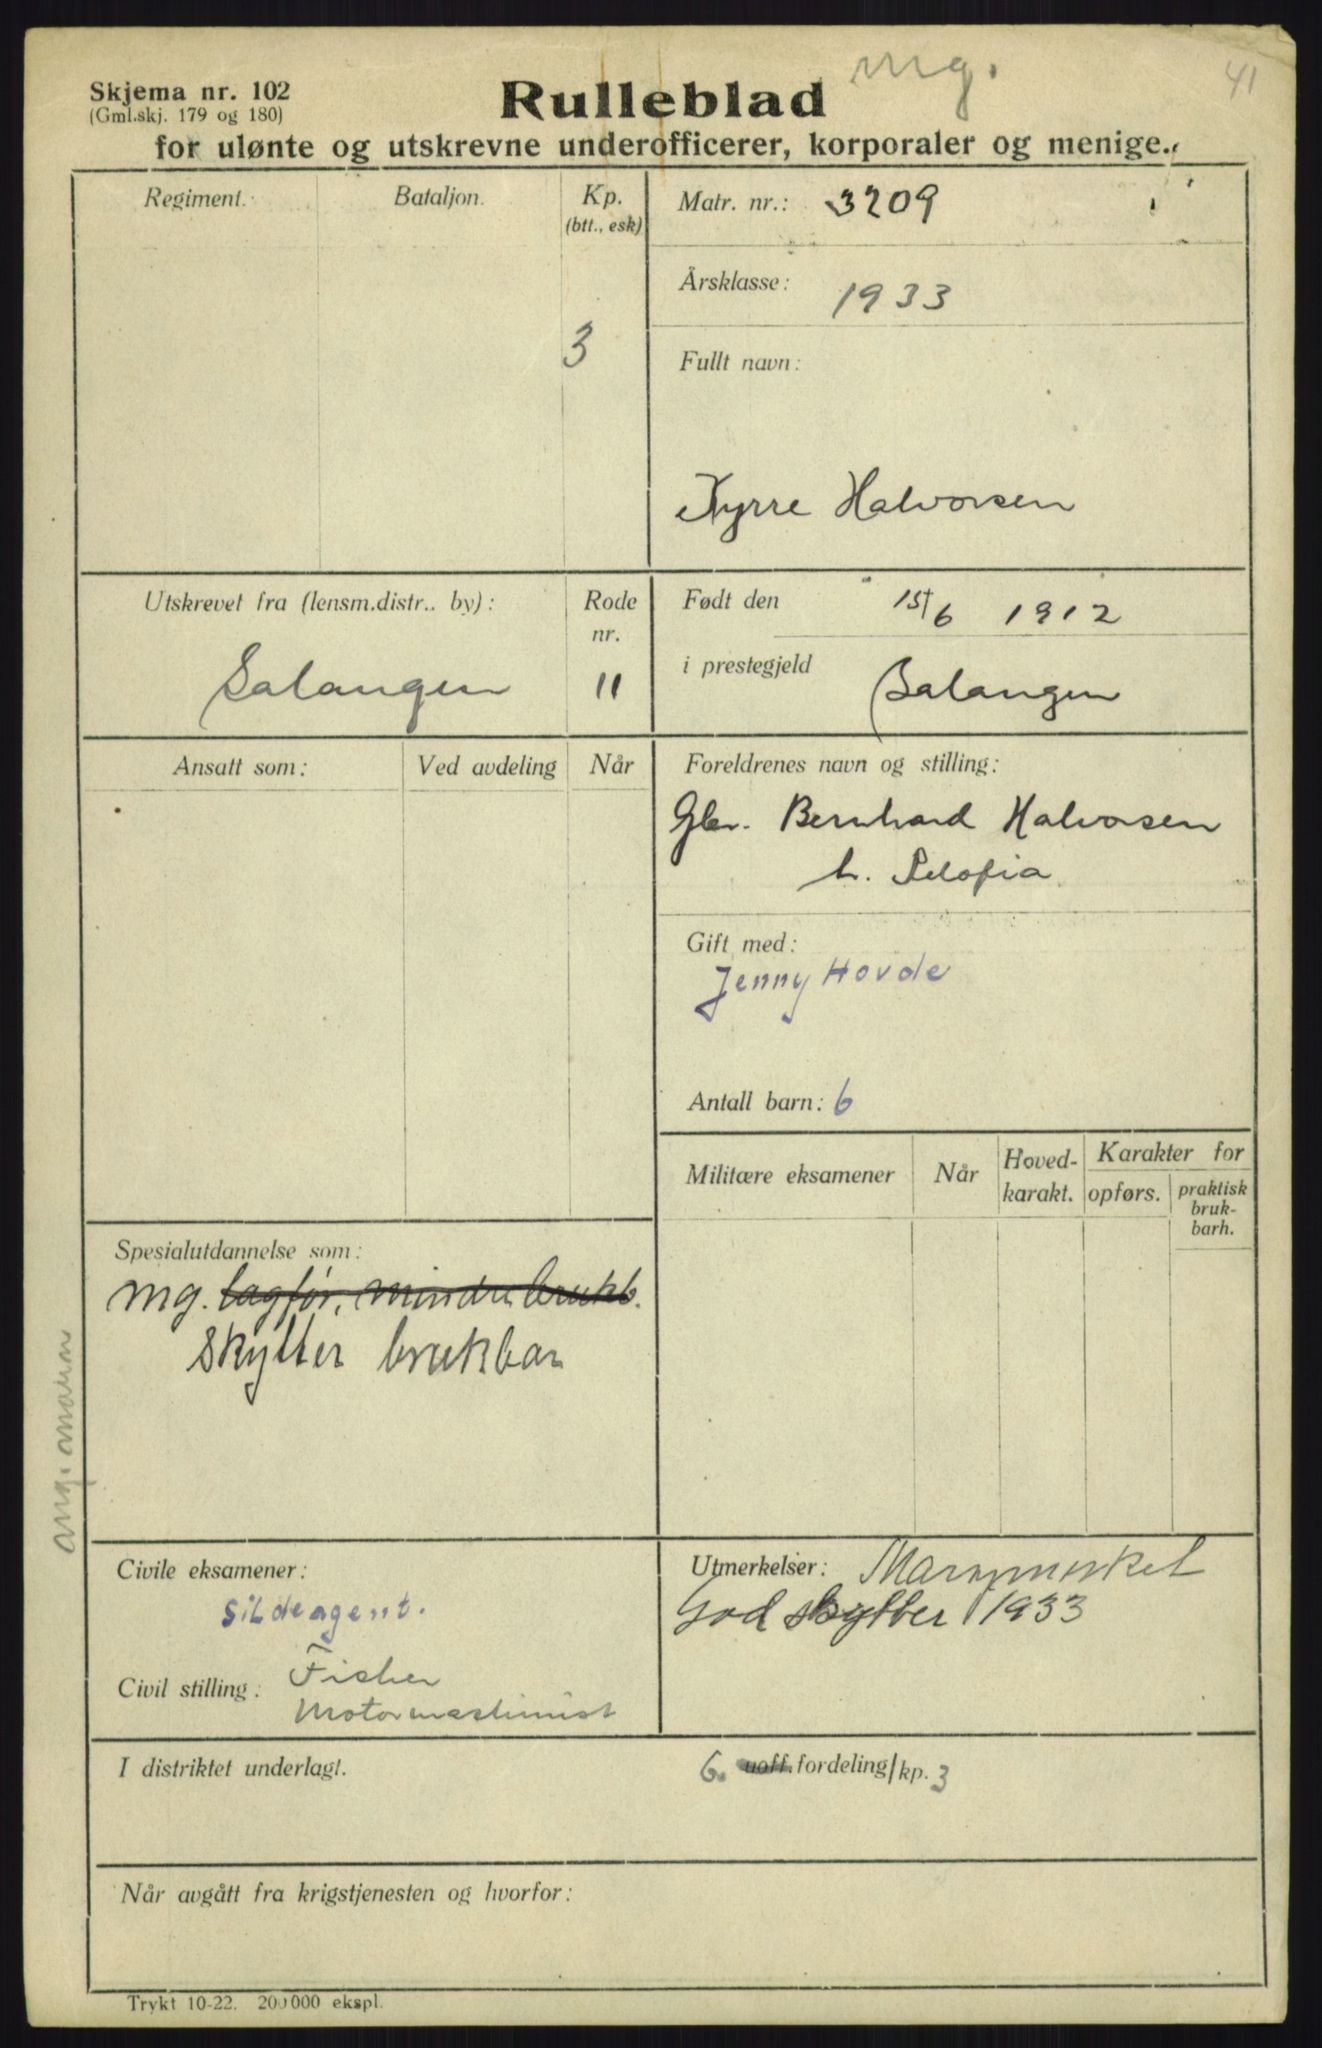 mg.
41
Skjema nr. 102
(Gml.skj. 179 og 180)
Rulleblad
for ulønte og utskrevne underofficerer, korporaler og menige.
Regiment.
Bataljon.
Kp.
(btt., esk)
3
Matr. nr.: 3209
Årsklasse: 1933
Fullt navn:
Kyrre Halvorsen
Utskrevet fra (lensm.distr.. by):
Salangen
Rode
nr.
11
Født den 15/6 1912
i prestegjeld Salangen
Ansatt som:
Ved avdeling
Når
Foreldrenes navn og stilling:
Gbr. Bernhard Halvorsen
h.
Gift med:
Jenny Hovde
Antall barn: 6
Militære eksamener
Når
Hoved-
karakt.
Karakter for
opførs.
praktisk
bruk-
barh.
Spesialutdannelse som:
mg. lagfør, mindre brukb.
Skytter brukbar
Civile eksamener:
Sildeagent.
Civil stilling: Fisker
Motormaskinist
Utmerkelser: Marsjmerket
God skytter 1933
I distriktet underlagt.
6. uoff. fordeling/kp. 3
Når avgått fra krigstjenesten og hvorfor:
Trykt 10-22. 200 000 ekspl.